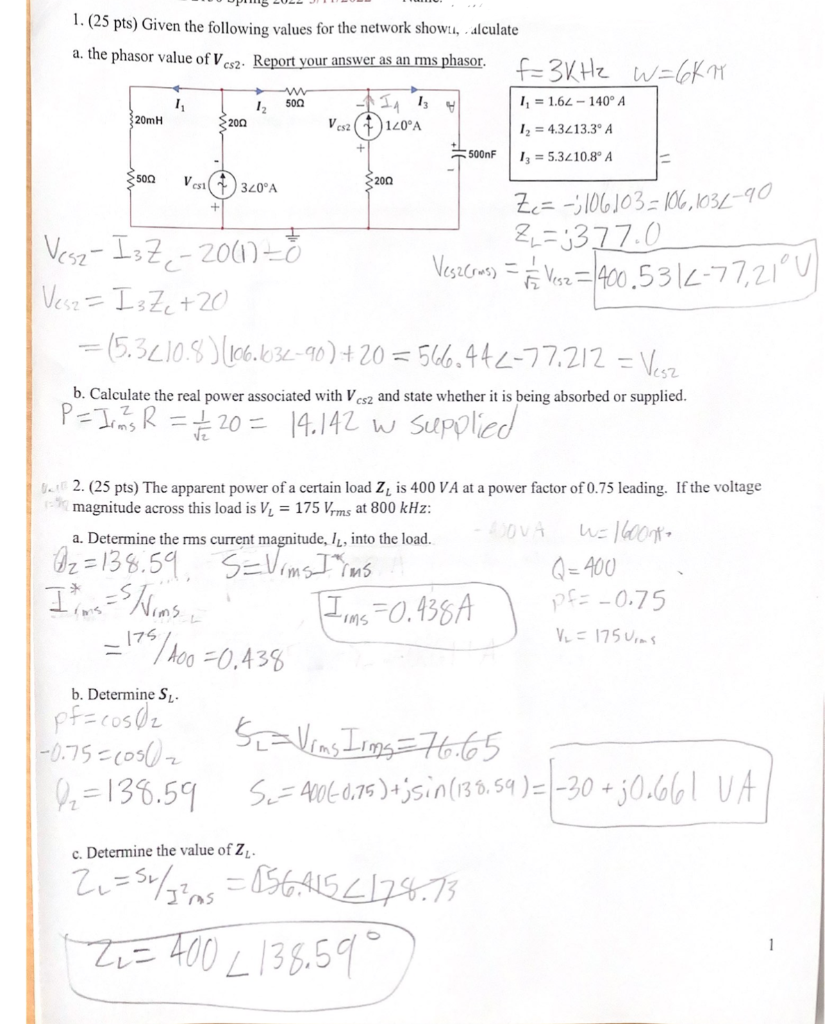 1. (25 pts) Given the following values for the network shown, calculate
a. the phasor value of V_cs2. Report your answer as an rms phasor.
f=3KHz w=6Kπ
I₁ I₂ 50Ω I₁ I₃
20mH 20Ω V_cs2 1∠0°A
+ 500nF
50Ω V_cs1 3∠0°A 20Ω
I₁ = 1.6∠ – 140° A
I₂ = 4.3∠13.3° A
I₃ = 5.3∠10.8° A
Z_c = -j106.103 = 106.103∠-90
Z_L = j377.0
V_cs2 - I₃Z_c - 20(1) = 0
V_cs2(rms) = 1/√2 V_cs2 = 400.531∠-77.21° V
V_cs2 = I₃Z_c + 20
= (5.3∠10.8)(106.103∠-90) + 20 = 566.44∠-77.212 = V_cs2
b. Calculate the real power associated with V_cs2 and state whether it is being absorbed or supplied.
P = I²rms R = 1/√2 20 = 14.142 w supplied
2. (25 pts) The apparent power of a certain load Z_L is 400 VA at a power factor of 0.75 leading. If the voltage
magnitude across this load is V_L = 175 V_rms at 800 kHz:
a. Determine the rms current magnitude, I_L, into the load.
w=1600π
θz=138.59 S=Vrms I*rms
Q=400
I*rms = S/Vrms
Irms=0.438A
pf= -0.75
V_L = 175 Vrms
= 175/400 = 0.438
b. Determine S_L.
pf=cosθz
S_L = Vrms Irms = 76.65
-0.75=cosθz
θz=138.59 S_L= 400(-0.75)+jsin(138.59)= -30 + j0.661 VA
c. Determine the value of Z_L.
Z_L = S_L/I²rms = 156.415∠178.73
Z_L = 400∠138.59°
1